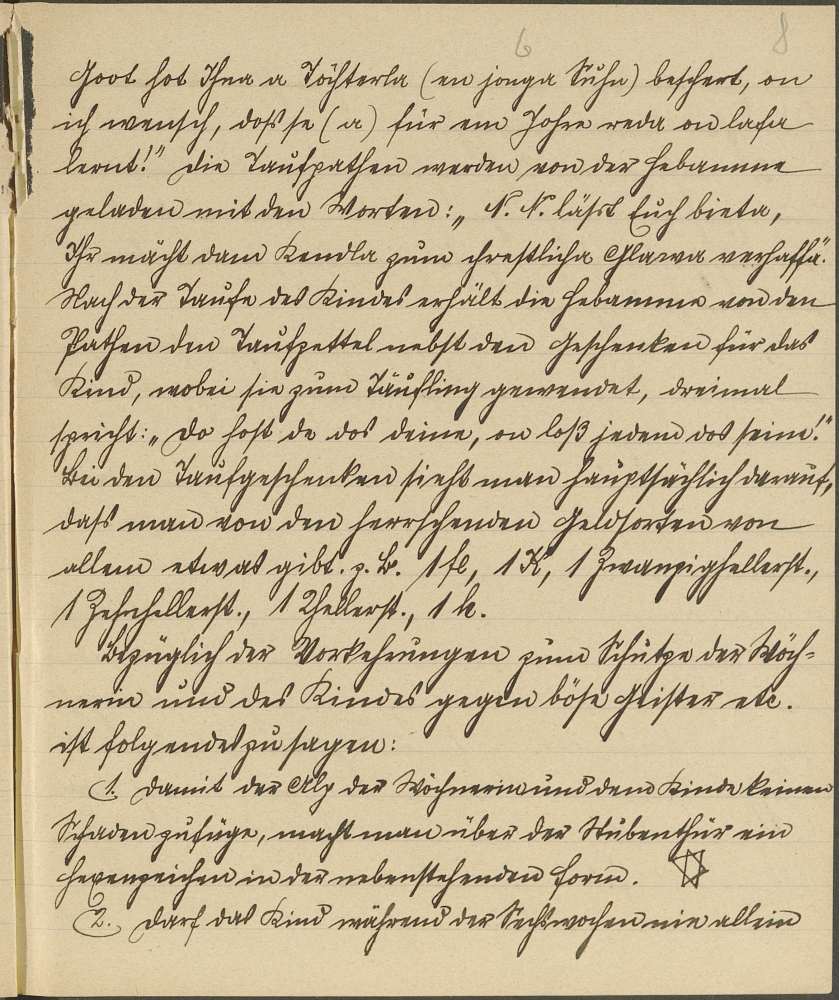 6 8
Goot hot Ihna a Töchterla (en jonga Suhn) beschert, on
ich wensch, doß se (a) für em Johre reda on lafa
lernt!" Die Taufpathen werden von der Hebamme
geladen mit den Worten: „N. N. läßt Euch bieta,
Ihr mächt dam Kendla zum chrestlicha Glawa verhaffa".
Nach der Taufe des Kindes erhält die Hebamme von den
Pathen den Taufzettel nebst den Geschenken für das
Kind, wobei sie zum Täufling gewendet, dreimal
spricht: „Do host de dos deine, on loß jedem dos seine!"
Bei den Taufgeschenken sieht man hauptsächlich darauf,
daß man von den herrschenden Geldsorten von
allem etwas gibt. z. B. 1 fl, 1 K, 1 Zwanzighellerst.,
1 Zehnhellerst., 1 2hellerst., 1 h.
Bezüglich der Vorkehrungen zum Schutze der Wöch-
nerin und des Kindes gegen böse Geister etc.
ist folgendes zu sagen:
1. Damit der Alp der Wöchnerin und dem Kinde keinen
Schaden zufüge, macht man über der Stubenthür ein
Hexenzeichen in der nebenstehenden Form.
2. Darf das Kind während der Sechswochen nie allein